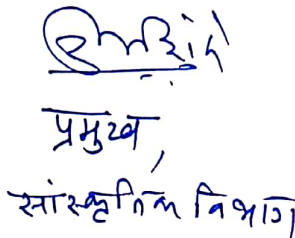 प्रमुख,
सांस्कृतिक विभाग